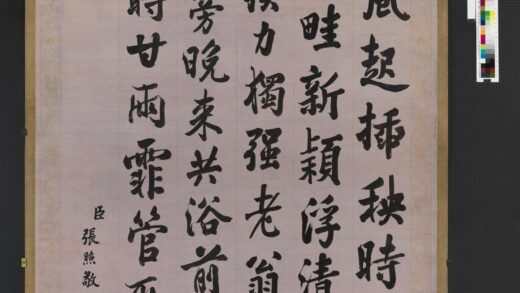 風起插秧時
畦新穎浮清
力獨强老翁
旁晚来共浴前
時甘雨霏管
臣張照敬